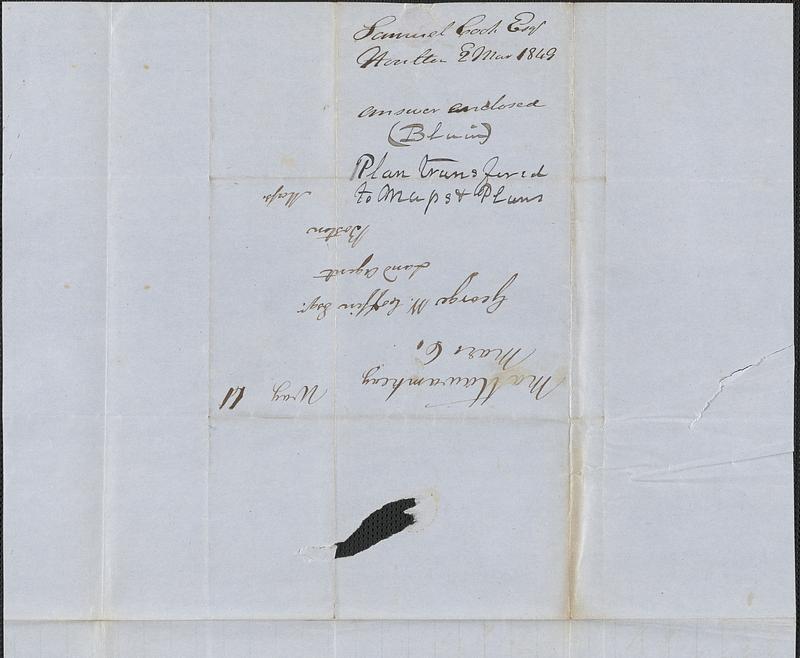 Samuel Cook Esq
Houlton 2 Mar 1849
answer enclosed
(Blain)
Plan transfered
to Maps & Plans
Mattawamkeag
Mar 6,
Way 11
George W. Coffin Esqr.
Land Agent
Boston
Mass.